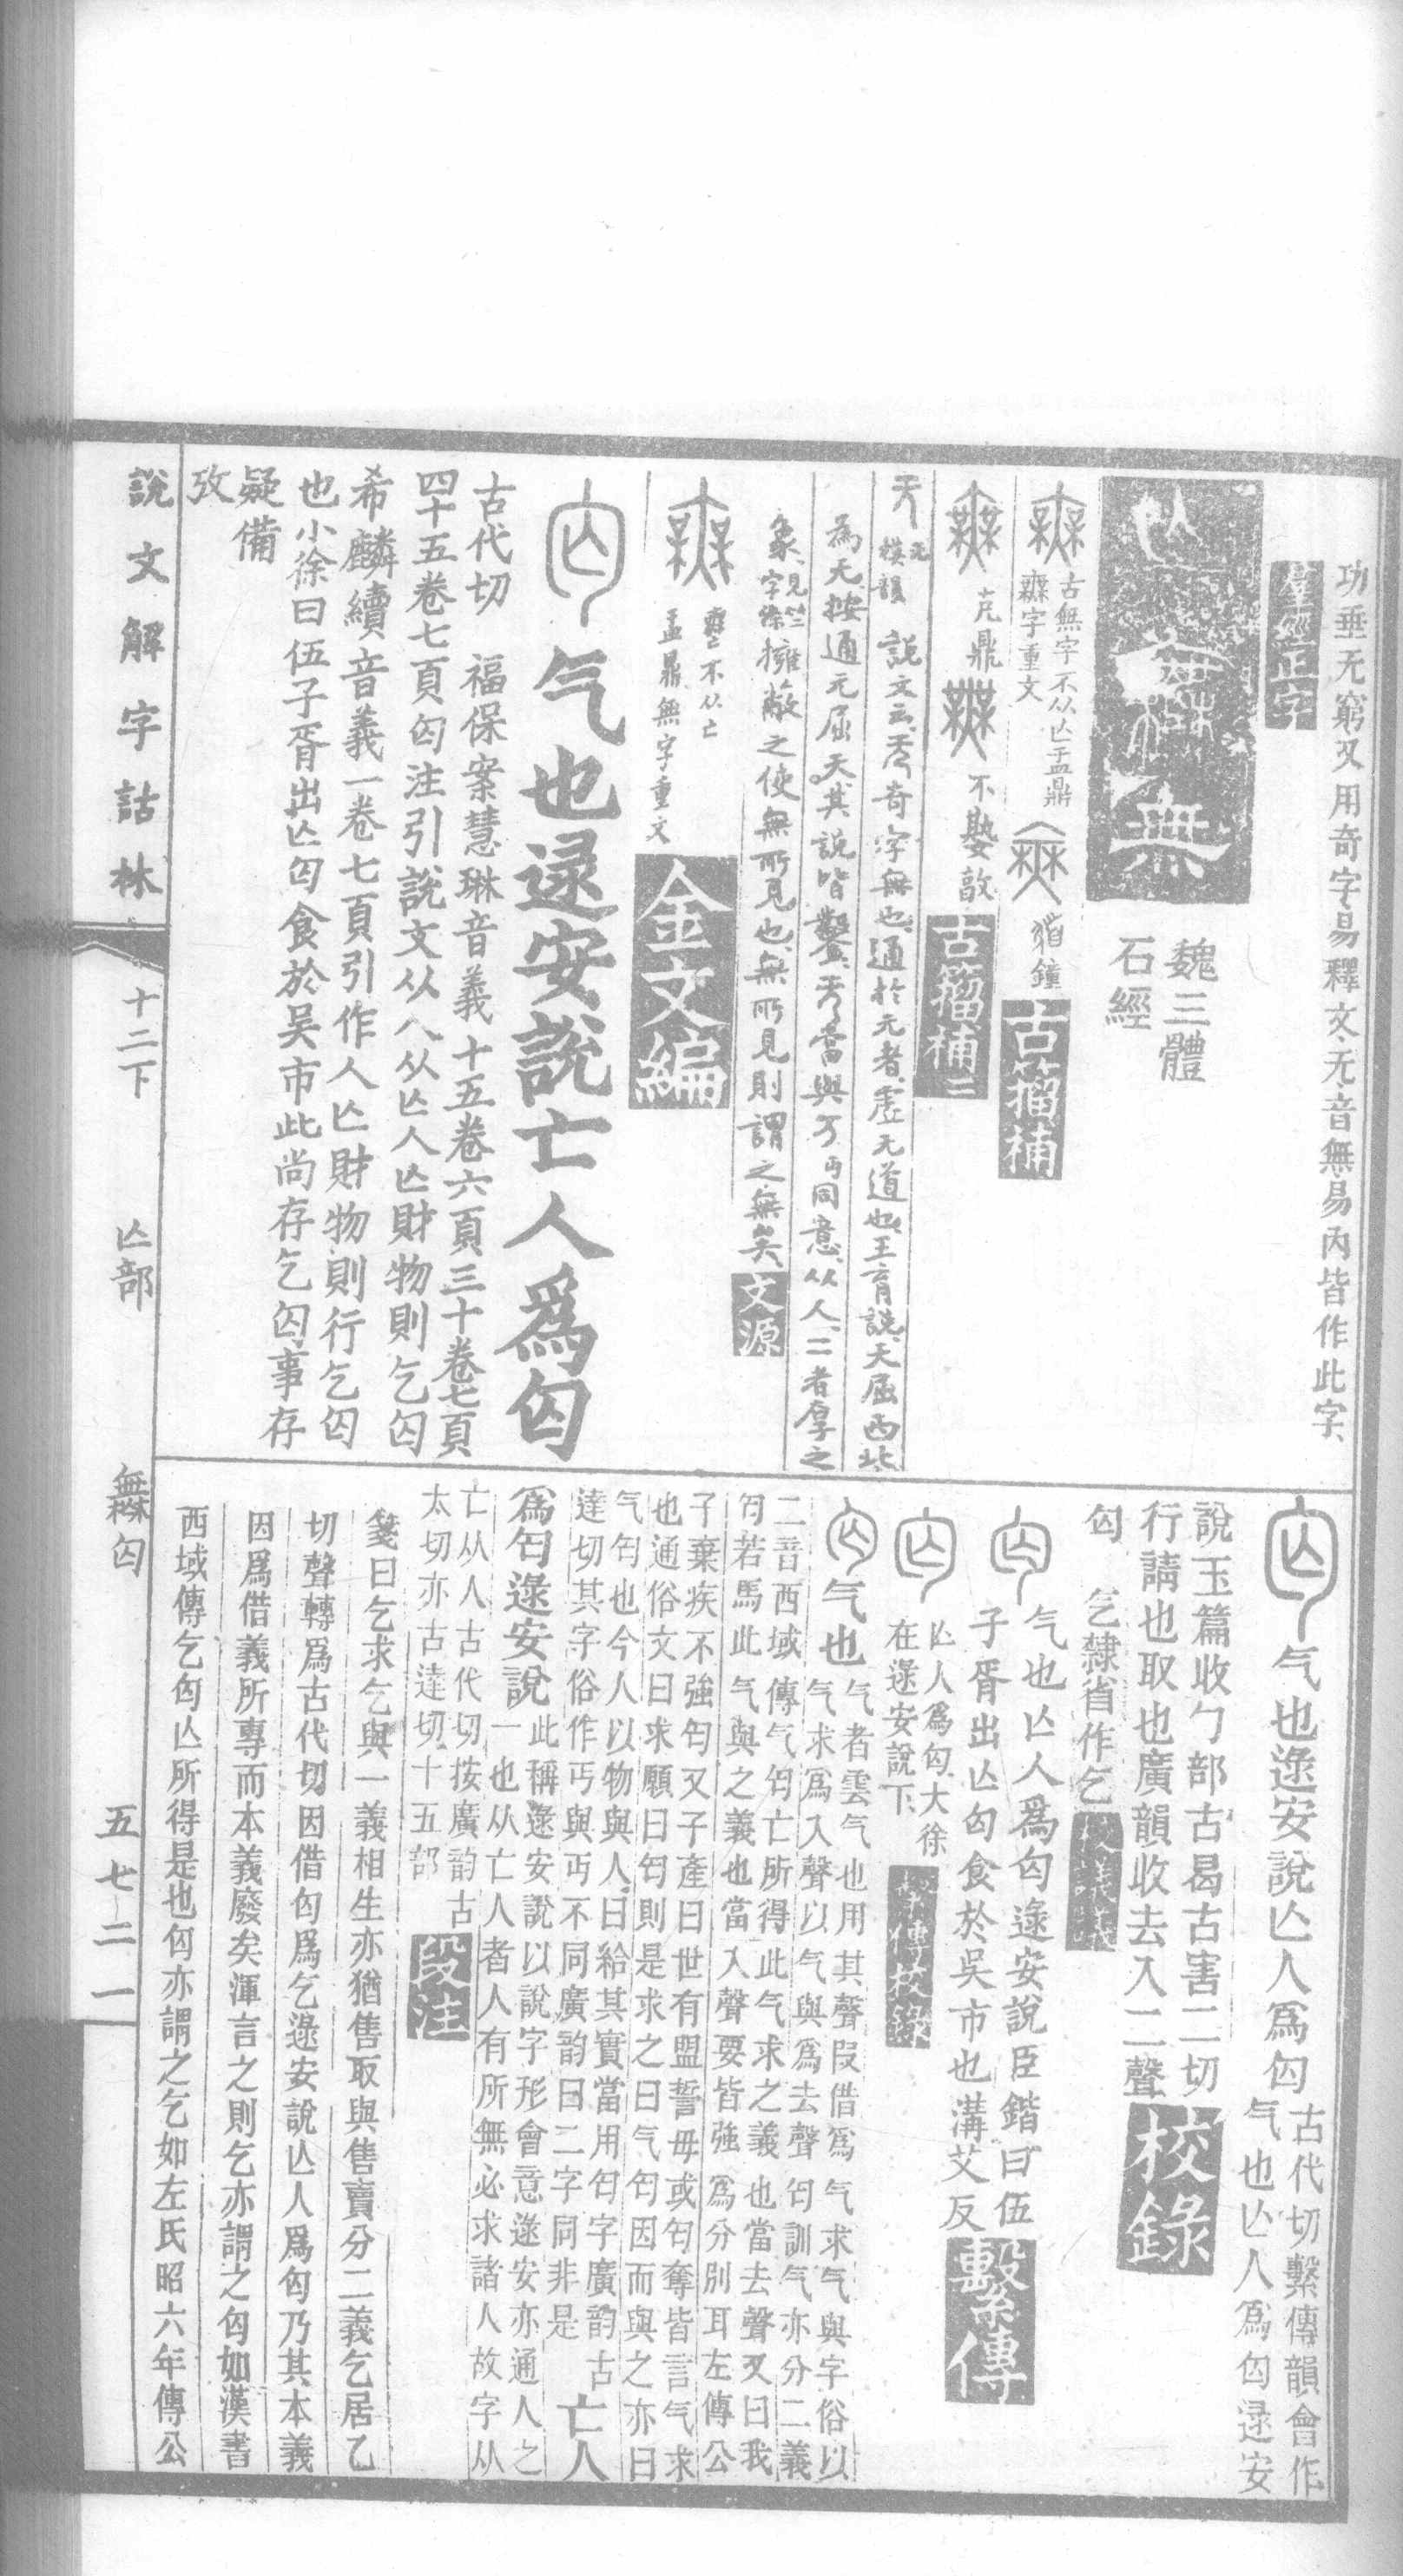 功垂无窮又用奇字易釋文无音無易丙皆作此字
群經正字
無
魏三體
石經
古無字不从亾盂鼎
橆字重文
猶鐘
古籀補
克鼎
不嬰敦
古籀補二
无
无
模韻
說文云无奇字無也通於元者虛无道也王育說天屈西北
為无按通元屈天其說皆鑿无當與丂丏同意从人二者厚之
象字見竺字條擁蔽之使無所見也無所見則謂之無矣
文源
橆不从亡
盂鼎無字重文
金文編
气也逯安說亡人爲匃
古代切 福保案慧琳音義十五卷六頁三十卷七頁
四十五卷七頁匃注引說文从人从亾人亾財物則乞匃
希麟續音義一卷七頁引作人亾財物則行乞匃
也小徐曰伍子胥出亾匃食於吴市此尚存乞匃事存
疑備
攷
气也逯安說亾人爲匃
古代切繫傳韻會作
气也亾人爲匃逯安
說玉篇收勹部古曷古害二切
行請也取也廣韻收去入二聲
校錄
匃 乞隸省作乞
校議議
气也亾人爲匃逯安說臣鍇曰伍
子胥出亾匃食於吴市也溝艾反
繫傳
亾人爲匃大徐
在逯安說下
繫傳校錄
气也
气者雲气也用其聲叚借爲气求气與字俗以
气求爲入聲以气與爲去聲匄訓气亦分二義
二音西域傳气匄亡所得此气求之義也當去聲又曰我
匄若馬此气與之義也當入聲要皆強爲分別耳左傳公
子棄疾不強匄又子產曰世有盟誓毋或匄奪皆言气求
也通俗文曰求願曰匄則是求之曰气匄因而與之亦曰
气匄也今人以物與人曰給其實當用匄字廣韵古
達切其字俗作丐與丏不同廣韵曰二字同非是
亡人
爲匄逯安說
此稱逯安說以說字形會意逯安亦通人之
一也从亡人者人有所無必求諸人故字从
亡从人古代切按廣韵古
太切亦古達切十五部
段注
箋曰乞求乞與一義相生亦猶售取與售賣分二義乞居乙
切聲轉爲古代切因借匃爲乞逯安說亾人爲匃乃其本義
因爲借義所專而本義廢矣渾言之則乞亦謂之匃如漢書
西域傳乞匃亾所得是也匃亦謂之乞如左氏昭六年傳公
說文解字詁林
十二下
亾部
橆匃
五七二一